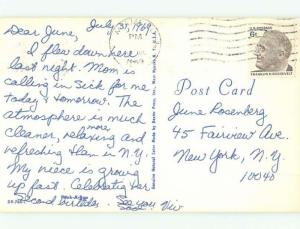 July 31, 1969
Dear June,
I flew down here
last night. Mom is
calling in sick for me
today & tomorrow. The
atmosphere is much
cleaner, more relaxing and
refreshing than in N.Y.
My niece is growing
up fast. Celebrating her
second birthday. See you Viv
Post Card
June Rosenberg
45 Fairview Ave
New York, N.Y.
10040
6¢
FRANKLIN D. ROOSEVELT